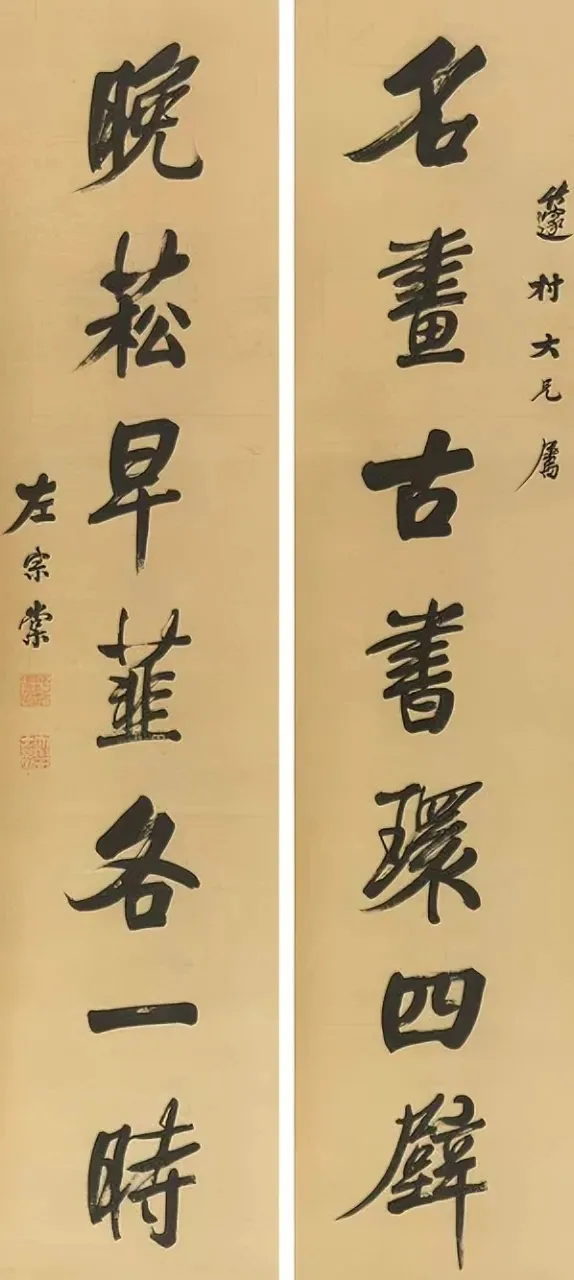 村大兄屬
名畫古書環四壁
晚菘早韮各一時
左宗棠